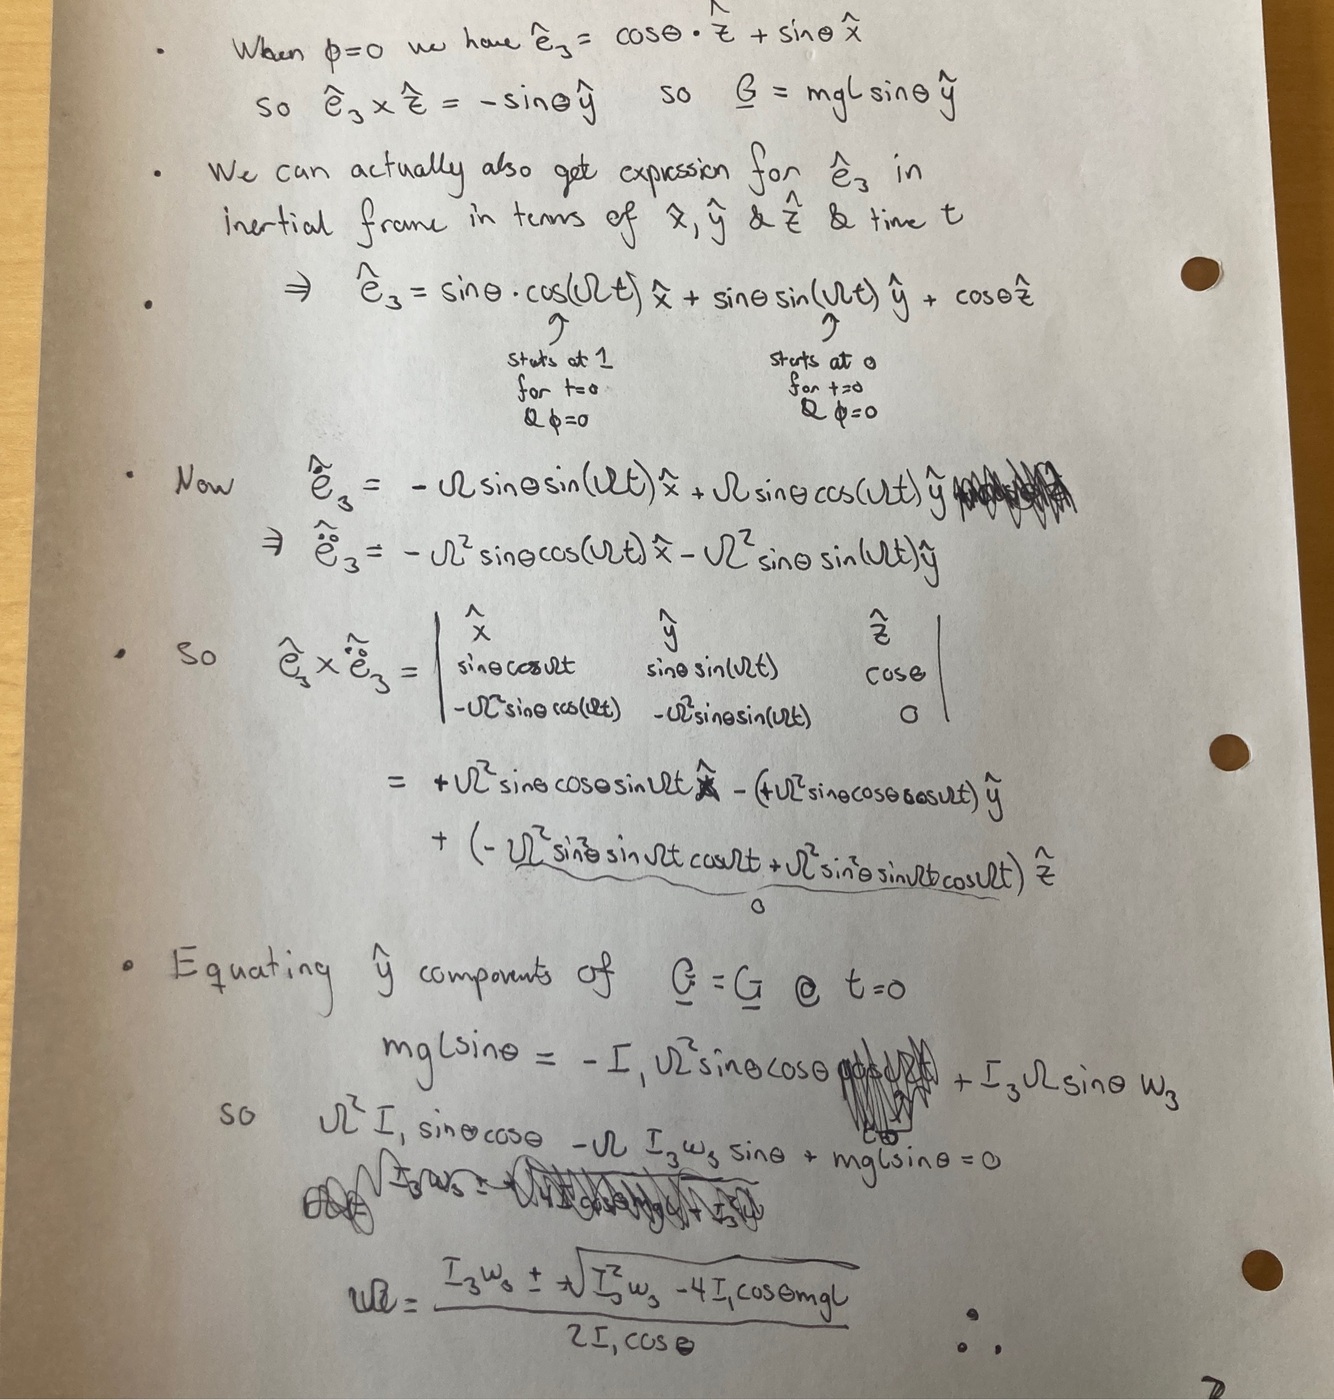 • When ϕ=0 we have ê₃ = cosθ·ẑ + sinθ x̂
so ê₃ × ẑ = -sinθ ŷ so G = mgl sinθ ŷ
• We can actually also get expression for ê₃ in
inertial frame in terms of x̂, ŷ & ẑ & time t
• ⇒ ê₃ = sinθ·cos(Ωt) x̂ + sinθ sin(Ωt) ŷ + cosθ ẑ
starts at 1 starts at 0
for t=0 for t=0
& ϕ=0 & ϕ=0
• Now ê̇₃ = -Ω sinθ sin(Ωt) x̂ + Ω sinθ cos(Ωt) ŷ
⇒ ê̈₃ = -Ω² sinθ cos(Ωt) x̂ - Ω² sinθ sin(Ωt) ŷ
x̂ ŷ ẑ
• So ê₃ × ê̈₃ = | sinθ cosΩt sinθ sin(Ωt) cosθ |
-Ω² sinθ cos(Ωt) -Ω² sinθ sin(Ωt) 0
= +Ω² sinθ cosθ sinΩt x̂ - (+Ω² sinθ cosθ cosΩt) ŷ
+ (-Ω² sin²θ sinΩt cosΩt + Ω² sin²θ sinΩt cosΩt) ẑ
0
• Equating ŷ components of G = G @ t=0
mgl sinθ = -I₁ Ω² sinθ cosθ + I₃ Ω sinθ ω₃
so Ω² I₁ sinθ cosθ - Ω I₃ ω₃ sinθ + mgl sinθ = 0
Ω = I₃ω₃ ± √(I₃² ω₃ - 4I₁ cosθ mgl)
2I₁ cosθ
∴